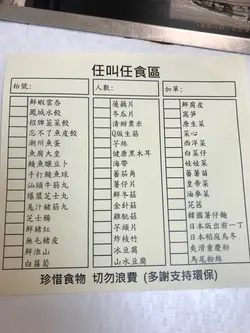 任叫任食區
枱號： 人數： 加單：
鮮蝦雲吞 蓮藕片 鮮腐皮
鳳城水餃 冬瓜片 窩笋
招牌韮菜餃 清甜粟米 唐生菜
忘不了魚皮餃 Q版生筋 菜心
潮州魚蛋 芋絲 西洋菜
魚腐大皇 健康黑木耳 白菜仔
鯪魚釀豆卜 海帶 娃娃菜
手打鯪魚球 蕃茄角 蕃薯苗
汕頭牛筋丸 薯仔片 皇帝菜
爆漿芝士丸 鮮冬菇 油麥菜
瀨汁豬筋丸 金針菇 芝麻
芝士腸 雞髀菇 韓國薯仔麵
鮮豬紅 芋頭片 日本版出前一丁
無毛豬皮 炸枝竹 日本稻庭烏冬
鮮淮山 冰豆腐 爽滑重慶粉
白蘿蔔 山水豆腐 馬尾粉絲
珍惜食物 切勿浪費 (多謝支持環保)